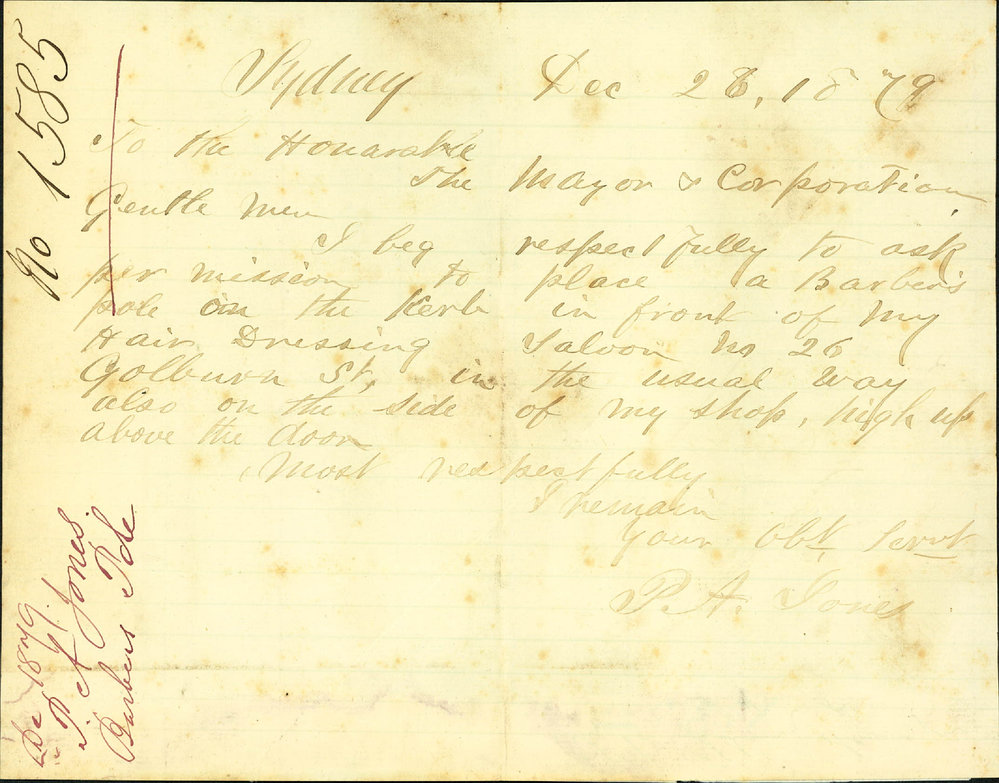 No 1585
Sydney Dec 26, 1879
To the Honarable
The Mayor & Corporation,
Gentle men
I beg respectfully to ask
per mission to place a Barber's
pole on the Kerb in front of my
Hair Dressing Saloon No 26
Golburn St, in the usual way
also on the side of my shop, high up
above the door
Most respectfully
I remain
your Obt Servt
P. A. Jones
De 1879
P. A Jones.
Barbers Pole